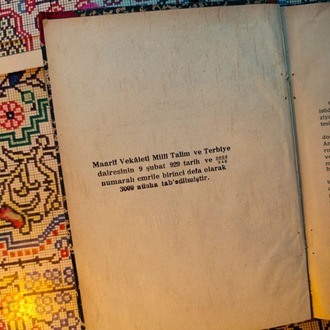 Maarif Vekâleti Millî Talim ve Terbiye
dairesinin 9 şubat 929 tarih ve
numaralı emrile birinci defa olarak
3000 nüsha tab'edilmiştir.